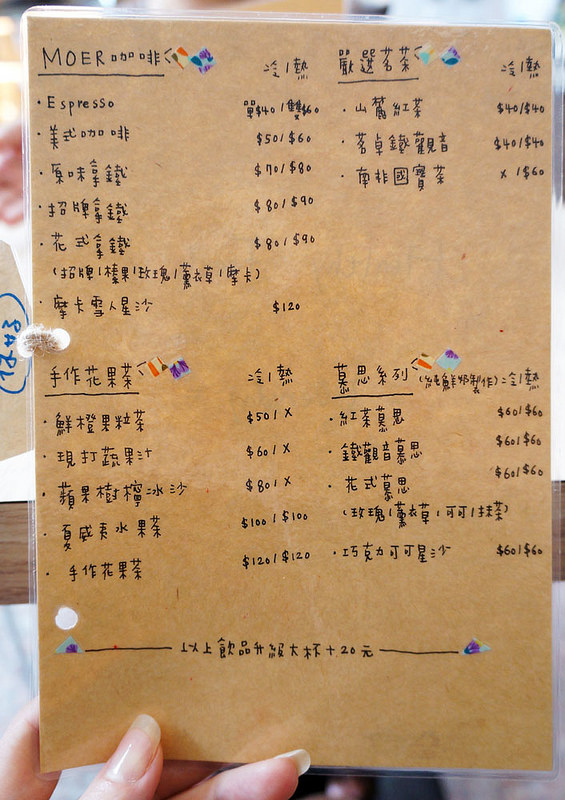 MOER咖啡 冷/熱
·Espresso 單$40/雙$60
·美式咖啡 $50/$60
·原味拿鐵 $70/$80
·招牌拿鐵 $80/$90
·花式拿鐵 $80/$90
(招牌/榛果/玫瑰/薰衣草/摩卡)
·摩卡雪人星沙 $120
嚴選茗茶 冷/熱
·山麓紅茶 $40/$40
·茗卓鐵觀音 $40/$40
·南非國寶茶 x/$60
手作花果茶 冷/熱
·鮮橙果粒茶 $50/x
·現打蔬果汁 $60/x
·蘋果樹檸冰沙 $80/x
·夏威夷水果茶 $100/$100
·手作花果茶 $120/$120
慕思系列(純鮮奶製作) 冷/熱
·紅茶慕思 $60/$60
·鐵觀音慕思 $60/$60
·花式慕思 $60/$60
(玫瑰/薰衣草/可可/抹茶)
·巧克力可可星沙 $60/$60
以上飲品升級大杯+20元